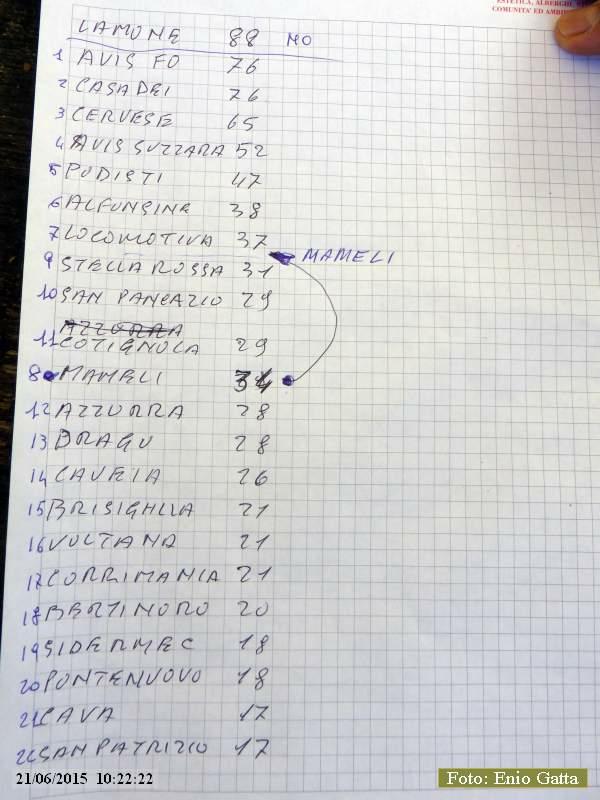 ESTETICA, ALBERGHI,
COMUNITA' ED AMBI
LAMONE 88 NO
1 AVIS FO 76
2 CASADEI 76
3 CERVESE 65
4 AVIS SUZZARA 52
5 PODISTI 47
6 ALFONSINE 38
7 LOCOMOTIVA 37
MAMELI
9 STELLA ROSSA 31
10 SAN PANCAZIO 29
AZZURRA
11 COTIGNOLA 29
8 MAMELI 34
12 AZZURRA 28
13 DRAGO 28
14 CAVEIA 26
15 BRISIGHLLA 21
16 VOLTANA 21
17 CORRIMANIA 21
18 BERTINORO 20
19 SIDERMEC 18
20 PONTENUOVO 18
21 CAVA 17
22 SAN PATRIZIO 17
21/06/2015 10:22:22
Foto: Enio Gatta